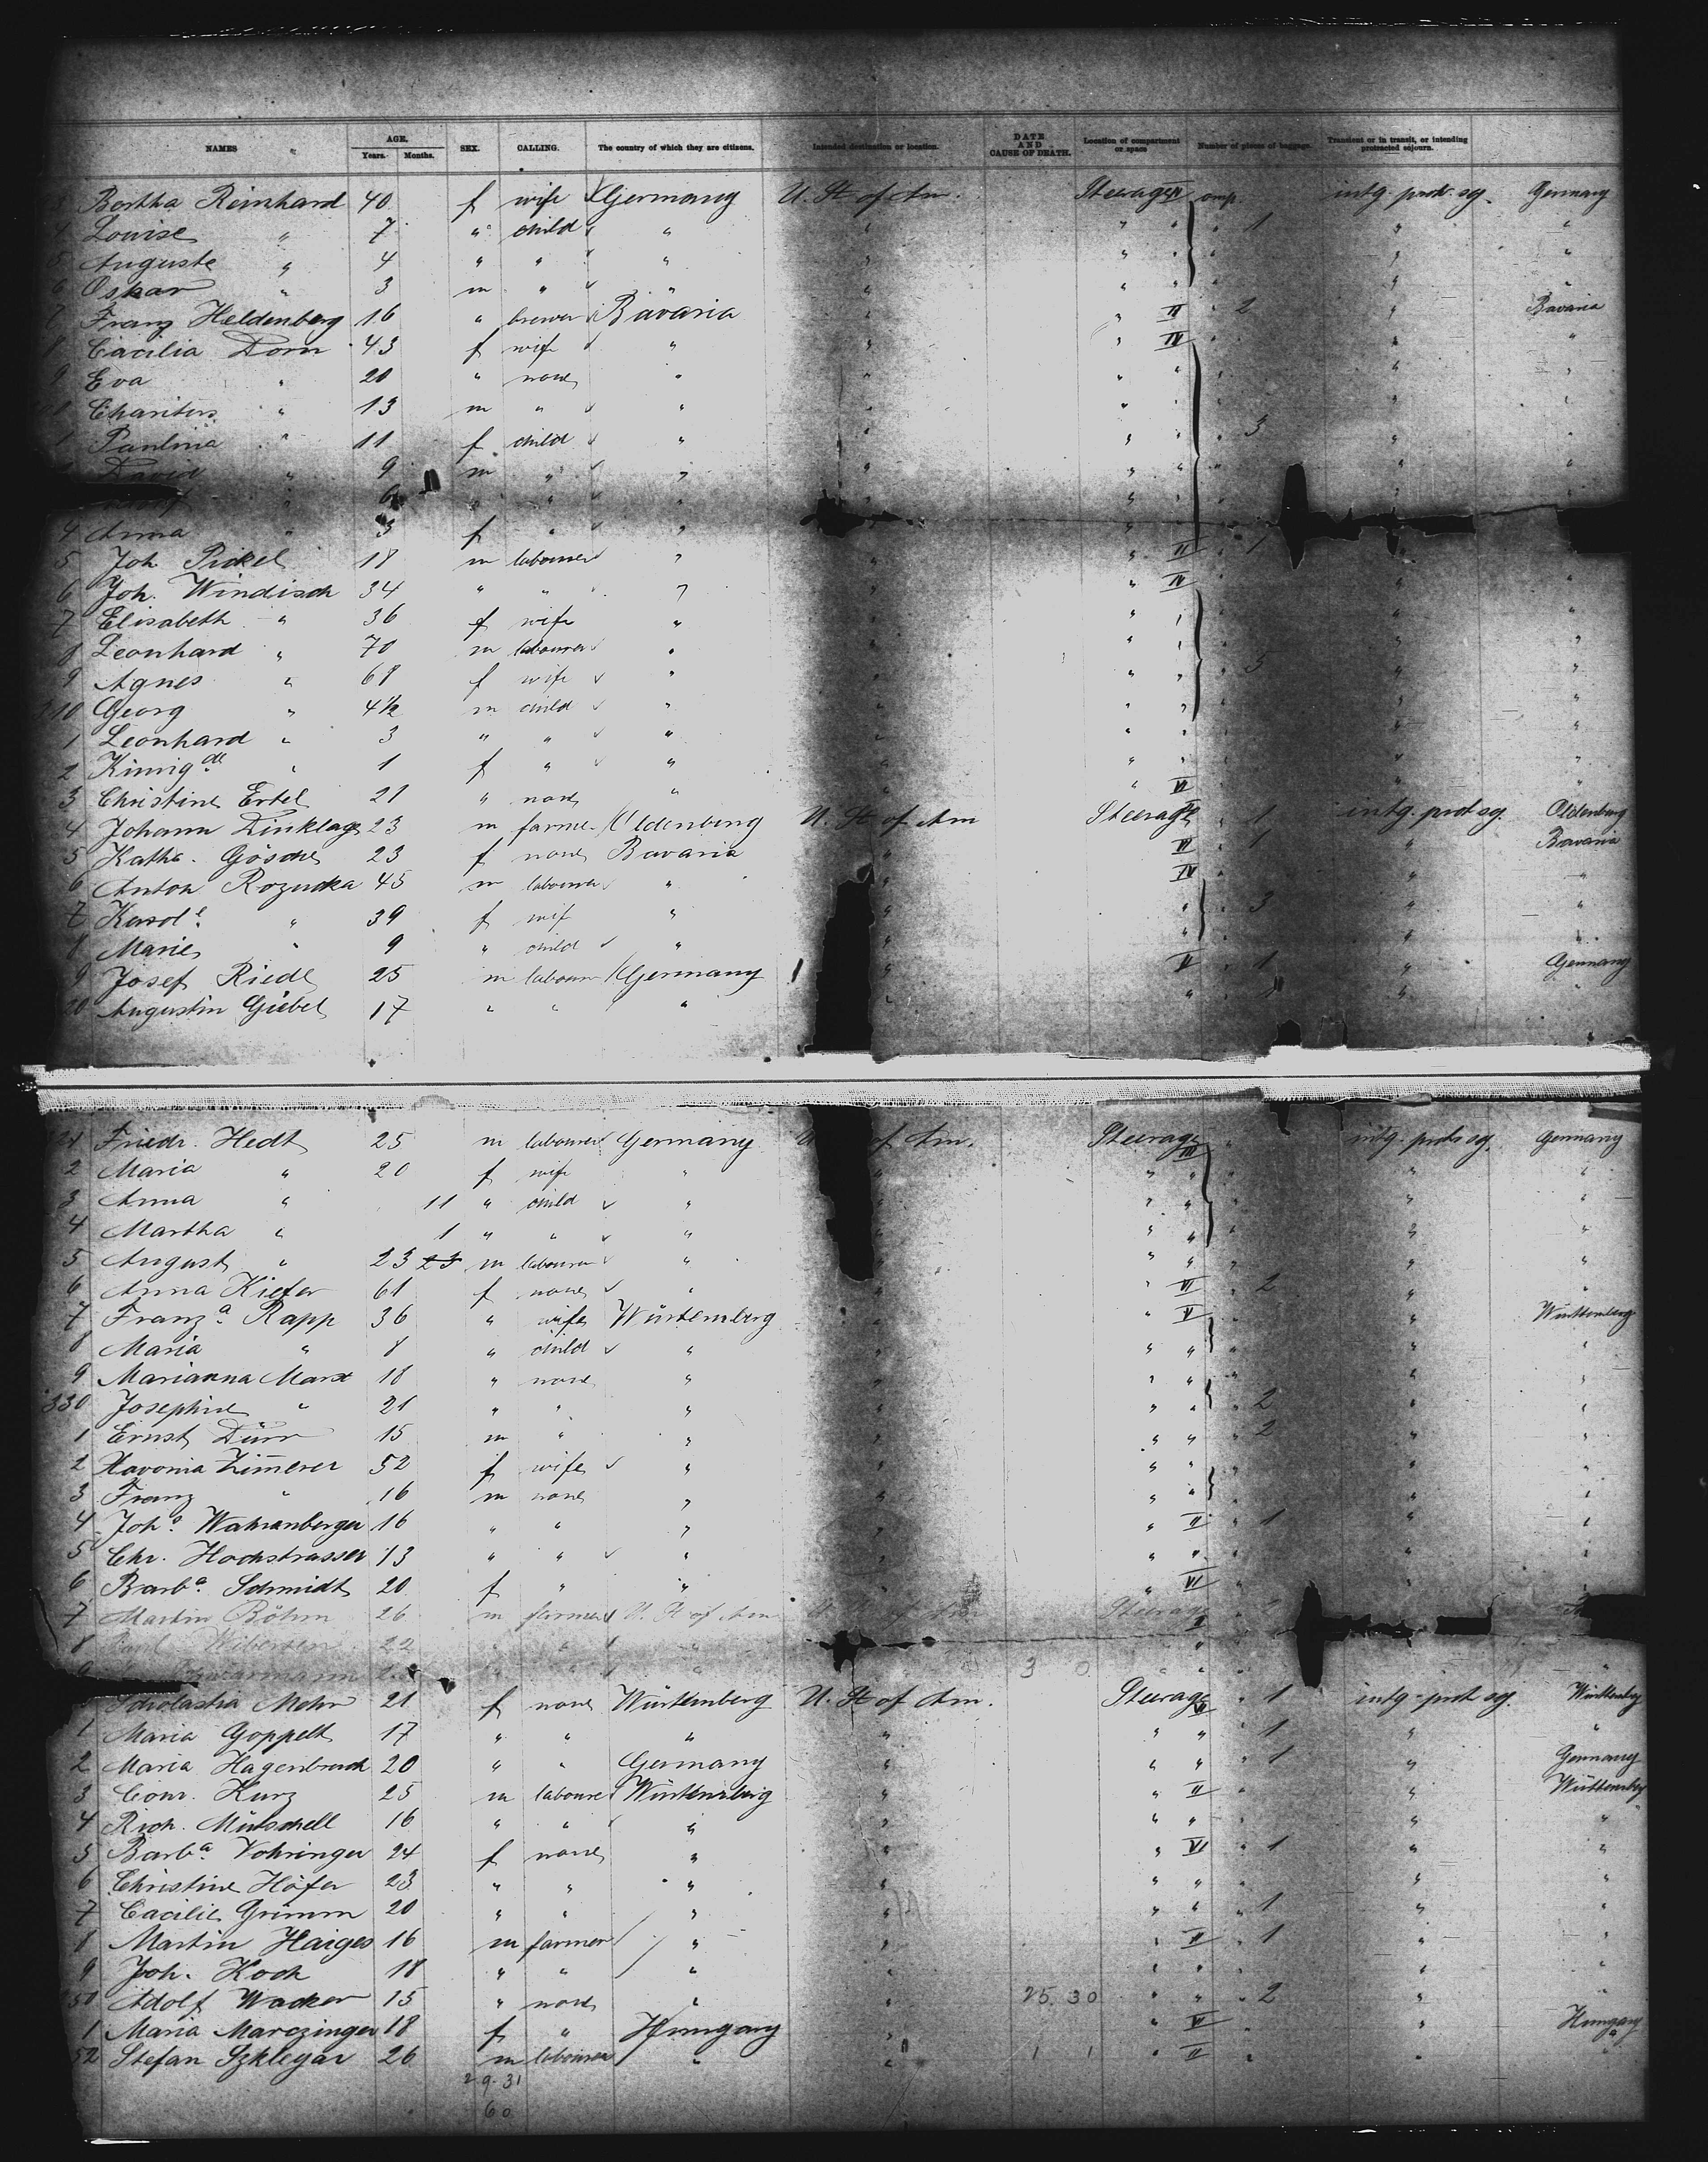 NAMES AGE. Years. Months. SEX. CALLING. The country of which they are citizens. Intended destination or location. DATE AND CAUSE OF DEATH. Location of compartment or space Number of pieces of baggage. Transient or in transit, or intending protracted sojourn.
Bertha Reinhard 40 f wife Germany U. St of Am. Steerage intg. protr. sg. Germany
Louise " 7 " child " " " " 1 " "
Auguste " 4 " " " " " " " "
6 Oskar " 3 m " " " " " " "
7 Franz Heldenberg 16 " brewer Bavaria " " II " 2 " Bavaria
8 Cacilia Dorn 43 f wife " " " IV " " "
9 Eva " 20 " none " " " " " " "
Charitas " 13 m " " " " " " "
1 Paulina " 11 f child " " " " " 3 " "
David " 9 m " " " " " " "
6 " " "
4 Anna " 3 f " " "
5 Joh Pickel 18 m labourer " " " II " 1 "
6 Joh. Windisch 34 " " " " " IV " "
7 Elisabeth " 36 f wife " " " " " "
8 Leonhard " 70 m labourer " " " " " "
9 Agnes " 68 f wife " " " " " 5 " "
310 Georg " 4½ m child " " " " " "
1 Leonhard " 3 " " " " " " " "
2 Kunigde " 1 f " " " " " " "
3 Christine Ertel 21 " none " " " VI " "
4 Johann Dinklage 23 m farmer Oldenburg U. St of Am Steerage " 1 intg. prot sg. Oldenburg
5 Katha. Gösche 23 f none Bavaria " VI " 1 " Bavaria
6 Anton Rozucka 45 m labourer " " IV " "
7 Karole " 39 f wif " " " " 3 " "
8 Marie " 9 " child " " " " "
9 Josef Riedl 25 m labourer Germany " II " 1 " Germany
20 Augustin Giebel 17 " " " " " " 1 " "
321 Friedr. Hedt 25 m labourer Germany U of Am. Steerage III " intg. protr sg. Germany
2 Maria " 20 f wife " " " " " "
3 Anna " 11 " child " " " " " "
4 Martha " 1 " " " " " " " "
5 August " 23 23 m labourer " " " " " " "
6 Anna Kiefer 61 f none " " " VI " 2 " "
7 Franza Rapp 36 " wife Würtemberg " " IV " Württemberg
8 Maria " 8 " child " " " " " " "
9 Marianna Marx 18 " none " " " " " " "
330 Josephine " 21 " " " " " " " 2 " "
1 Ernst Dürr 15 m " " " " " " 2 " "
2 Xavonia Zimerer 52 f wife " " " " " "
3 Franz " 16 m none " " " " " "
4 Johs Wahranberger 16 " " " " " II " 1 " "
5 Chr. Hochstrasser 13 " " " " " " " " "
6 Barba. Schmidt 20 f " " " " VI " " "
7 Martin Böhm 26 m farmer U. St of Am Steerage
8 Wibersen 22 " " "
9 3 0
Scholastia Mohr 21 f none Würtemberg U. St of Am. Steerage " 1 intg. prot sg. Württembg
1 Maria Goppelt 17 " " " " " " " 1 " "
2 Maria Hagenbuch 20 " " Germany " " " " 1 " Germany
3 Conr. Kurz 25 m labourer Würtemberg " " II " " Württembg
4 Rich. Mütschell 16 " " " " " " " "
5 Barba. Vohringer 24 f none " " " VI " 1 " "
6 Christine Höfer 23 " " " " " " " "
7 Cacilie Grimm 20 " " " " " " " 1 " "
8 Martin Haiges 16 m farmer " " " II " 1 " "
9 Joh. Koch 18 " " " " " " " " "
350 Adolf Wacker 15 " none " " 25. 30 " " " 2 " "
1 Maria Marczinger 18 f " Hungary " " VI " " Hungary
52 Stefan Szklegar 26 m labourer " " 1 1 " II " " "
29.31
60